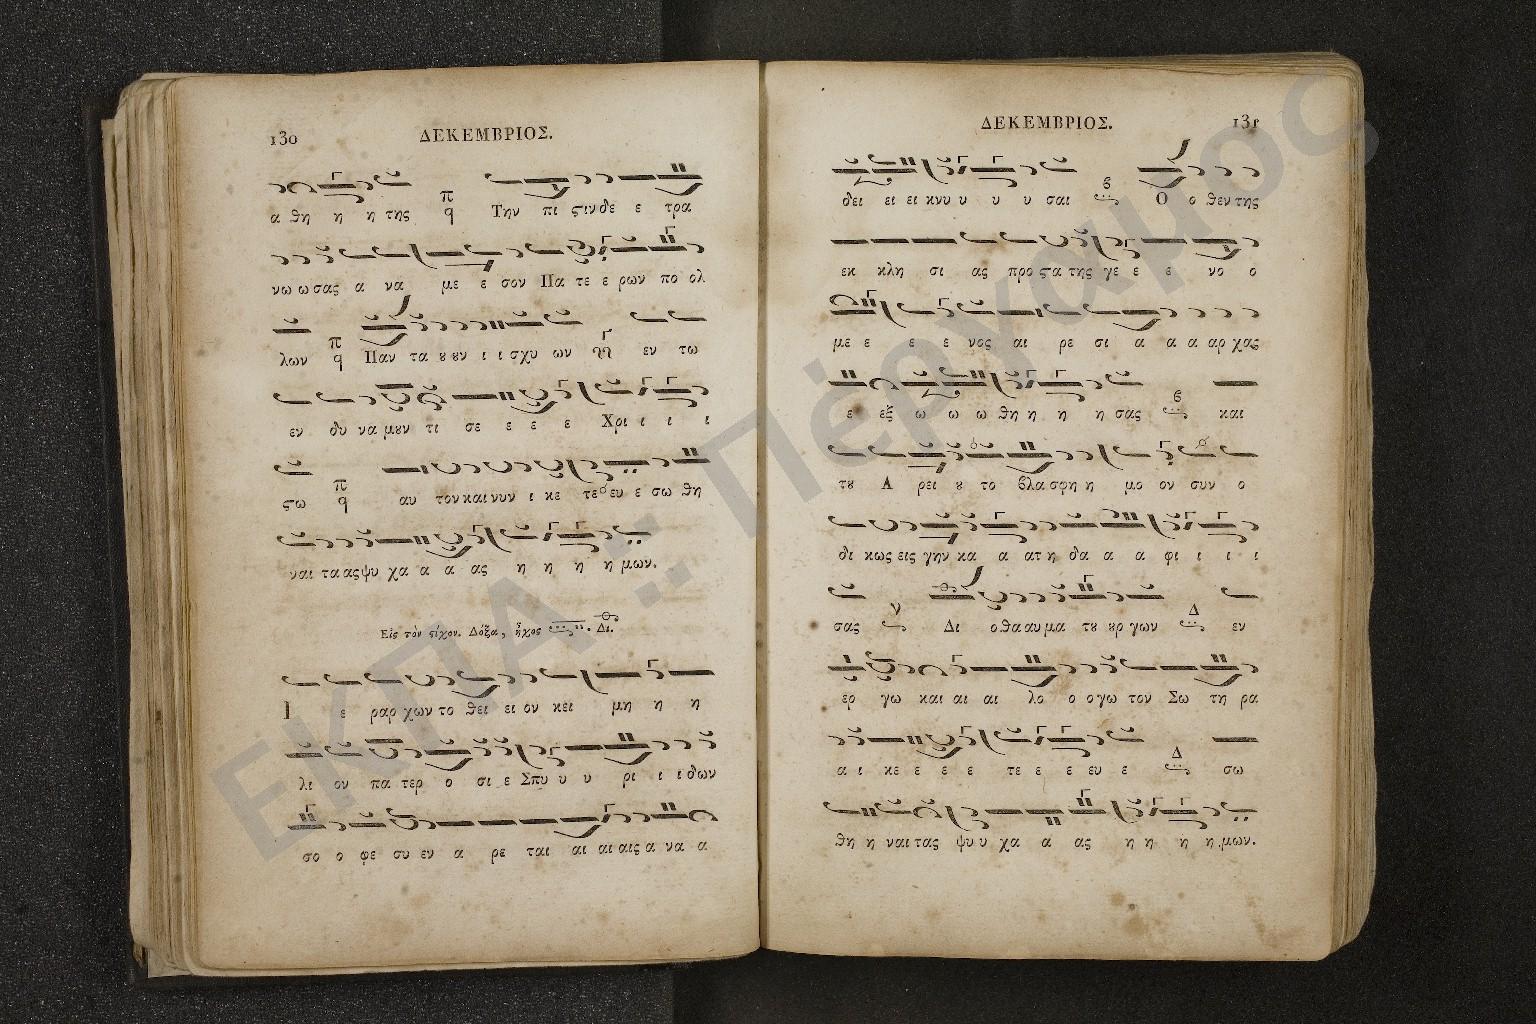 130 ΔΕΚΕΜΒΡΙΟΣ.
α θη η η της π q Την πι ϛιν δε ε τρα
νω ω σας α να με ε σον Πα τε ε ρων πο ολ
λων π q Παν τα ȣ ȣν ι ι σχυ ων εν τω
εν δυ να μȣν τι σε ε ε ε Χρι ι ι ι
ϛω π q αυ τον και νυν ι κε τε ευ ε σω θη
ναι τα ας ψυ χα α α ας η η η η μων.
Εἰς τὸν ϛίχον. Δόξα, ἦχος Δι.
Ι ε ραρ χων το θει ει ον κει μη η η
λι ον πα τερ ο σι ε Σπυ υ υ ρι ι ι δων
σο ο φε συ εν α ρε ται αι αι αις α να α
ΔΕΚΕΜΒΡΙΟΣ. 131
δει ει ει κνυ υ υ υ σαι Ο ο θεν της
εκ κλη σι ας προ ϛα της γε ε ε νο ο
με ε ε ε νος αι ρε σι α α α αρ χας
ε εξ ω ω ω θη η η η σας και
τȣ Α ρει ȣ το βλα σφη η μο ον συν ο
δι κως εις γην κα α ατ η δα α α φι ι ι ι
σας ν Δι ο θα αυ μα τȣ ȣρ γων Δ εν
ερ γω και αι αι λο ο ο γω τον Σω τη ρα
α ι κε ε ε ε τε ε ε ευ ε Δ σω
θη η ναι τας ψυ υ χα α ας η η η η μων.
ΕΚΠΑ :: Πέργαμος